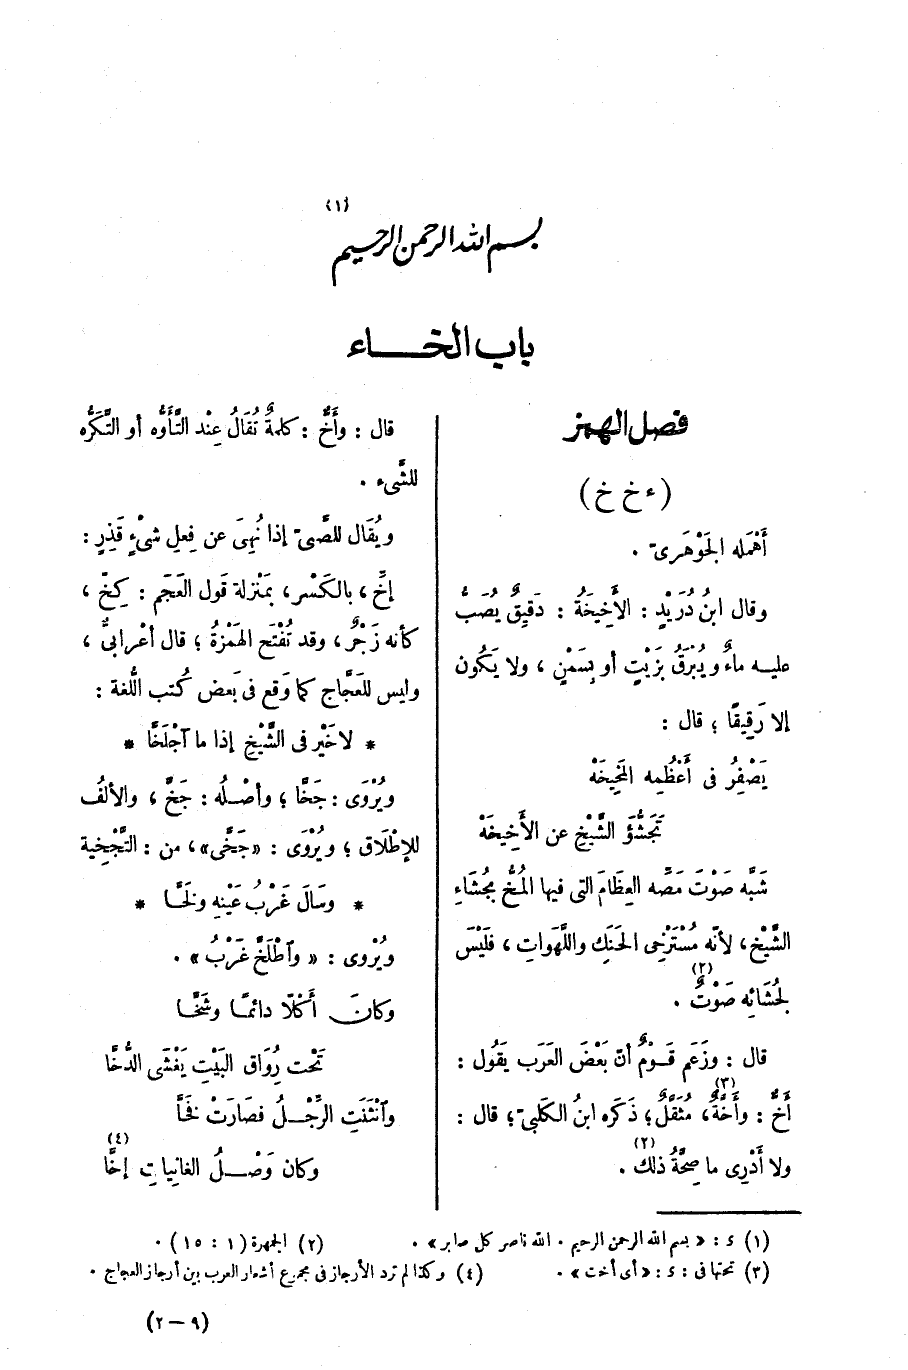 (١)
بسم الله الرحمن الرحيم
باب الخــاء
فصل الهمز
(ء خ خ)
أَهْمَله الجَوْهَرىّ .
وقال ابنُ دُرَيْدٍ : الأَخِيخَةُ : دَقِيقٌ يُصَبُّ
عليــه ماءٌ ويُبْرَقُ بزَيْتٍ أو بِسَمْنٍ ، ولا يَكُون
إلا رَقِيقًا ؛ قال :
يَصْفِرُ فى أَعْظُمِه المَخِيخَهْ
تَجَشُّؤَ الشَّيْخِ عن الأَخِيخَهْ
شَبَّه صَوْتَ مَصِّه العِظَامَ التى فيها المُخُّ بجُشَاءِ
الشَّيْخ، لأنّه مُسْتَرْخِى الحَنَكِ واللَّهَواتِ ، فلَيْسَ
لجُشَائِه صَوْتٌ(٢) .
قال : وزَعَم قَــوْمٌ أنّ بَعْضَ العَرَب يَقُول :
أَخٌّ : وأَخَّةٌ(٣)، مُثَقَّلٌ؛ ذَكَره ابنُ الكَلْبىّ؛ قال :
ولا أَدْرِى ما صِحَّةُ ذلك(٢) .
قال : وأَخٌّ : كلمةٌ تُقَالُ عِنْد التَّأَوُّه أو التَّكَرُّه
للشَّىء .
ويُقَال للصَّبىّ إذا نُهِىَ عن فِعلِ شىْءٍ قَذِرٍ :
إخِّ ، بالكَسْر ، بمَنْزلة قول العَجَم : كِخّ ،
كأنه زَجْرٌ ، وقد تُفْتَح الهَمْزةُ ؛ قال أعْرابىٌّ ،
وليس للعَجَّاج كما وَقع فى بَعض كُتب اللُّغة :
* لا خَيْرَ فى الشَّيْخِ إذا ما آجْلَخَّا *
ويُرْوَى : جَخَّا ؛ وأصْــلُه : جَخَّ ، والألفُ
للإطْلَاق ؛ ويُرْوَى : «جَخَّى»، من : التَّجْخِية
* وسَالَ غَرْبُ عَيْنِه ولَخَّــا *
ويُرْوى : «وآطْلَخَّ غَرْبُ» .
وكانَ أَكْلًا دائمًــا وشَخَّا
تَحْت رِوَاقِ البَيْتِ يَغْشَى الدُّخَّا
وآنْثَنَتِ الرِّجْــلُ فصَارَتْ فَخَّا
وكان وَصْــلُ الغانِياتِ إخَّا(٤)
(١) ء : «بسم الله الرحمن الرحيم . الله ناصر كل صابر» . (٢) الجمهرة (١ : ١٥) .
(٣) تحتها فى : ء : «أى أخت» . (٤) وكذا لم ترد الأرجاز فى مجموع أشعار العرب بين أرجاز العجاج .
(٩ — ٢)